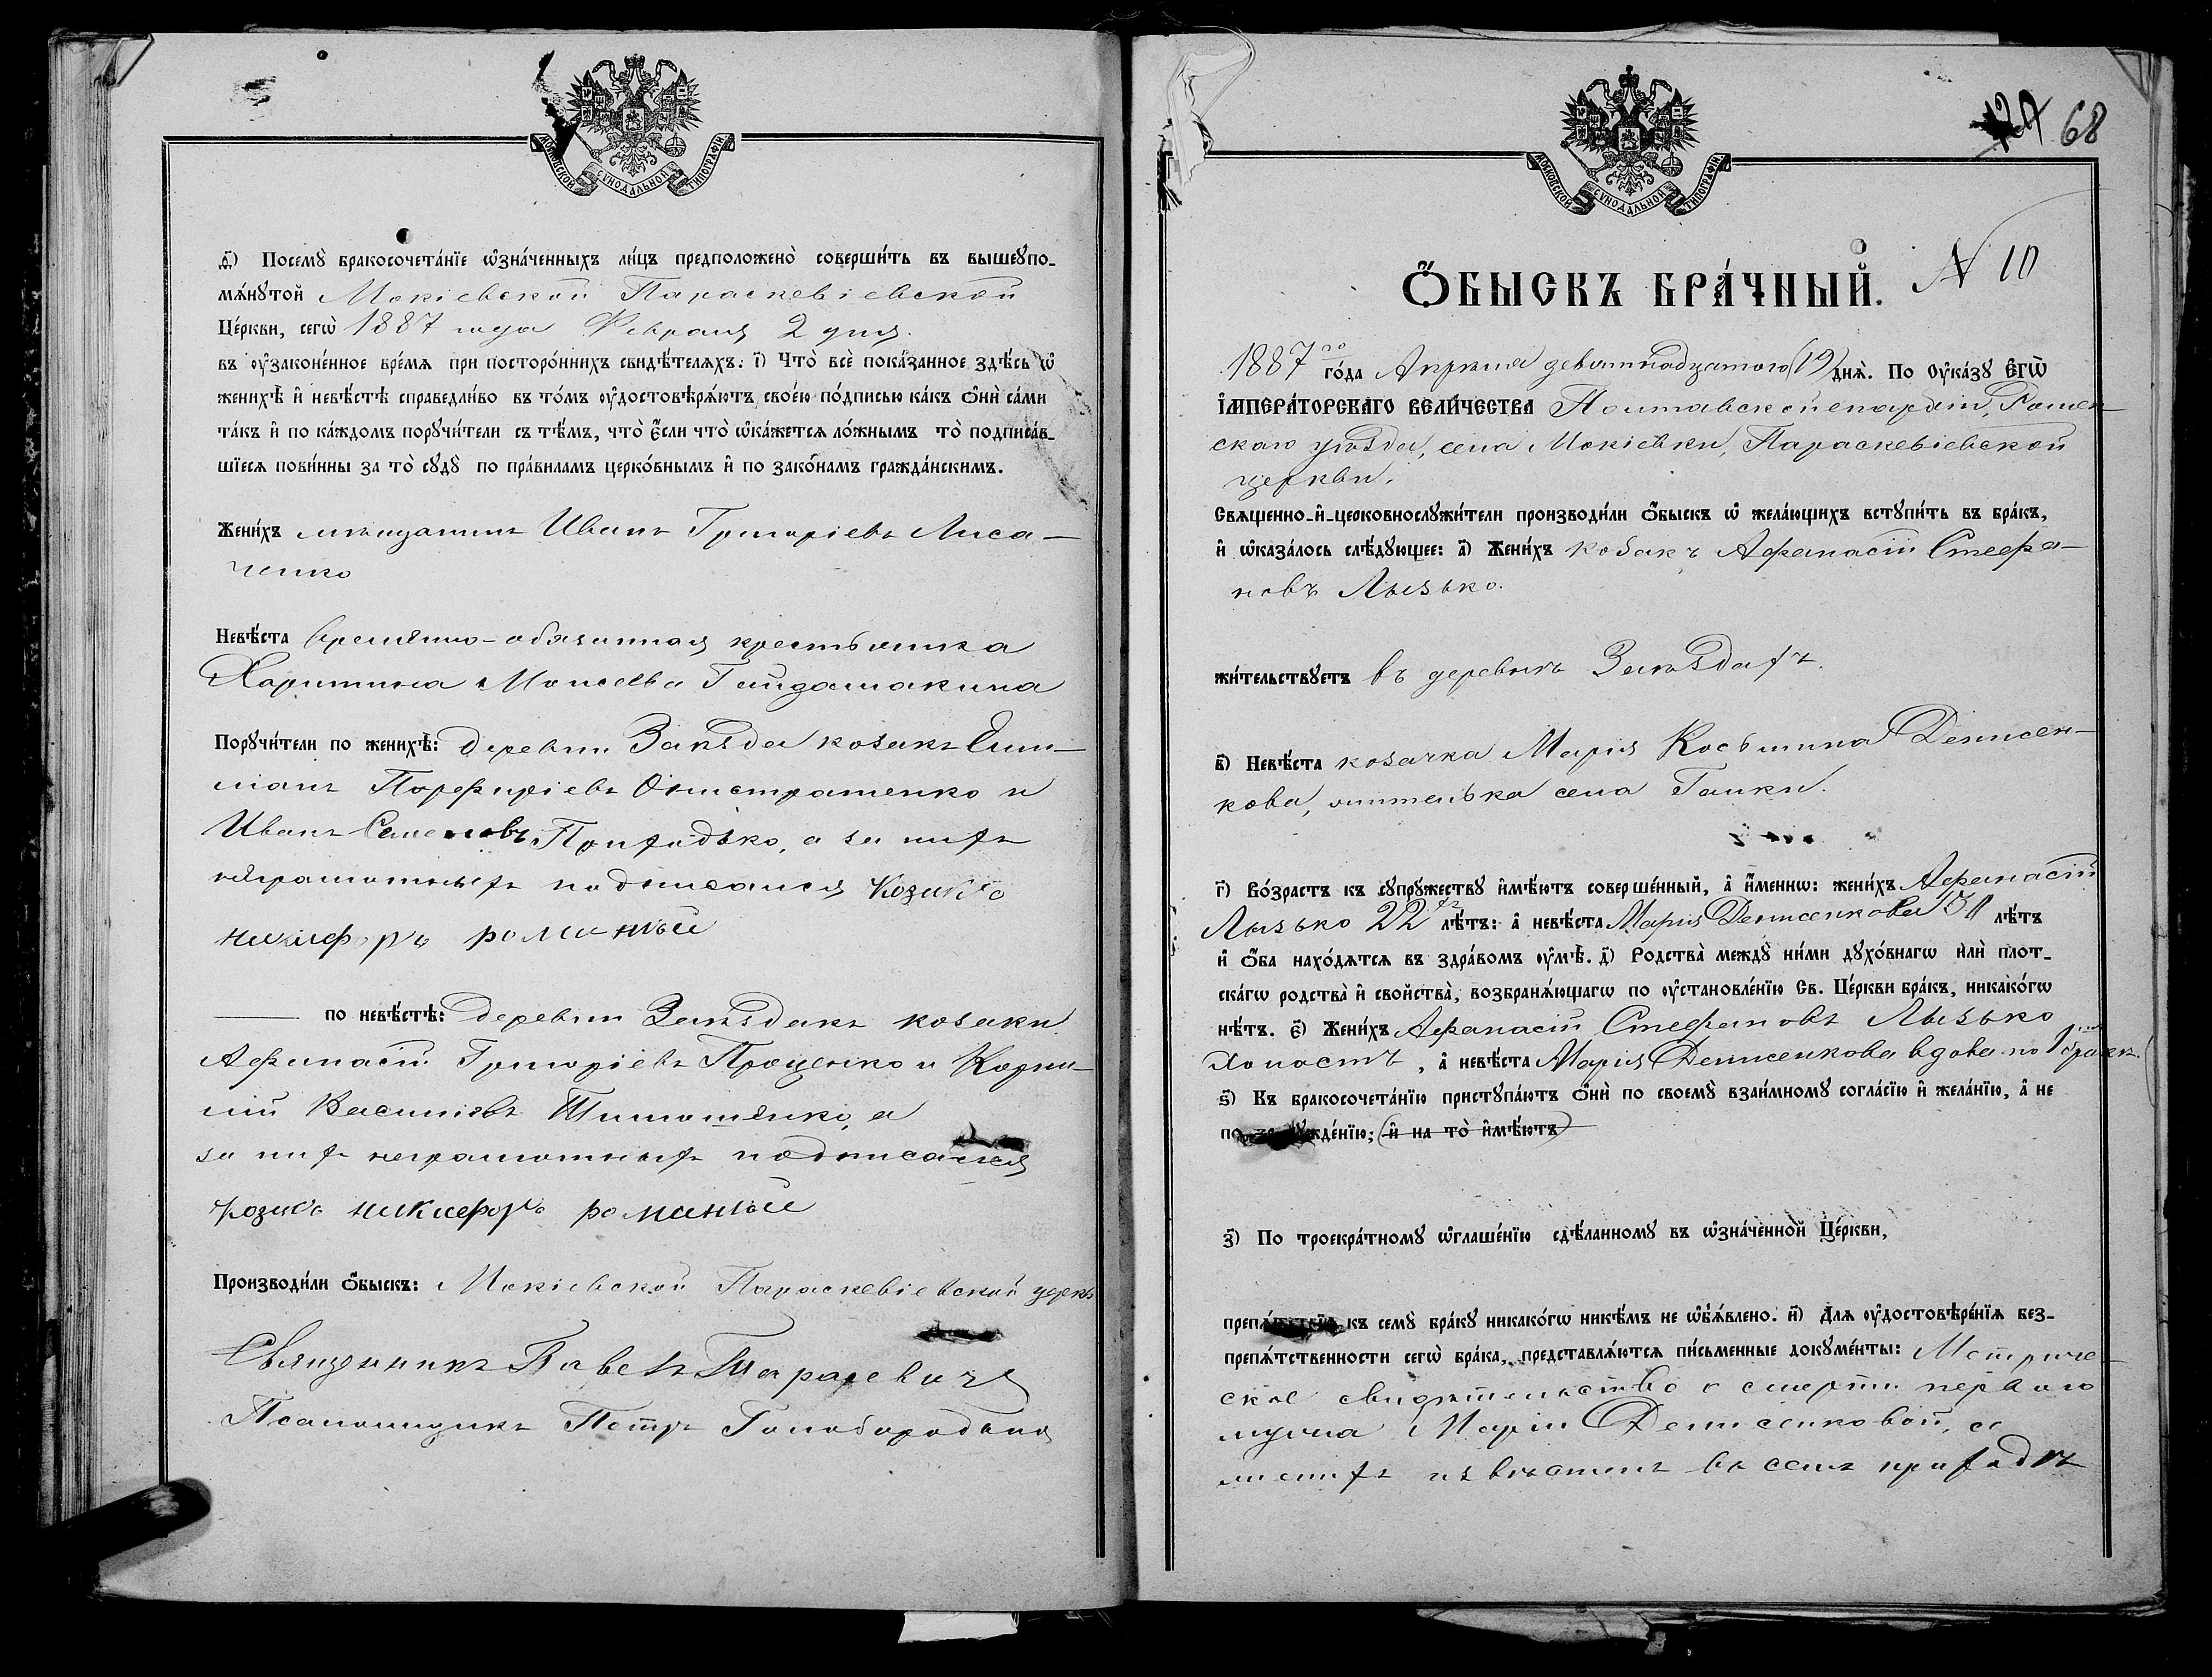 МОСКОВСКОЙ СѴНОДАЛЬНОЙ ТИПОГРАФІИ
д҃) Посемꙋ̀ бракосочета́нїе ѡ҆зна́ченныхъ ли́цъ предположено̀ соверши́ть въ вышеꙋпо-
мѧ́нꙋтой Мокіевской Параскевіевской
Це́ркви, сегѡ̀ 1887 года Февраля 2 дня.
въ ᲂу҆законе́нное вре́мѧ при посторо́ннихъ свидѣ́телѧхъ: і҃) Что̀ всѐ пока́занное здѣ́сь ѡ҆
женихѣ̀ и҆ невѣ́стѣ справедли́во въ то́мъ ᲂу҆достовѣрѧ́ютъ свое́ю по́дписью ка́къ ѻ҆нѝ са́ми
та́къ и҆ по ка́ждомъ порꙋчи́тели съ тѣ́мъ, что̀ є҆́сли что̀ ѡ҆ка́жетсѧ ло́жнымъ то̀ подписа́в-
шїесѧ пови́нны за то̀ сꙋдꙋ̀ по пра́виламъ церко́внымъ и҆ по зако́намъ гражда́нскимъ.
Жени́хъ мѣщанинъ Иванъ Григоріевъ Лиса-
ченко
Невѣ́ста временно-обязанная крестьянка
Харитина Моисеева Гайдамакина
Порꙋчи́тели по женихѣ̀: деревни Заѣзда козакъ
Порфиріевъ Онистратенко и
Иванъ Семеновъ Приходько, а за нихъ
неграмотныхъ подписался козакъ
никифоръ роминый
по невѣ́стѣ: деревни Заѣзда козаки
Афанасій Григоріевъ Проценко и Корни-
лій Василіевъ Тимошенко, а
за нихъ неграмотныхъ подписался
козакъ никифоръ роминый
Производи́ли ѻ҆́быскъ: Мокіевской Параскевіевской церкв
Священникъ Павелъ Тарасевичъ
Псаломщикъ Петръ Голобородько
МОСКОВСКОЙ СѴНОДАЛЬНОЙ ТИПОГРАФІИ
68
Ѻ҆́БЫСКЪ БРА́ЧНЫЙ. N 10
1887 го го́да Апрѣля девятнадцатого (19) днѧ̀. По Оу҆ка́зꙋ Є҆ГѠ̀
І҆МПЕРА́ТОРСКАГО ВЕЛИ́ЧЕСТВА Полтавской епархіи, Ромен-
скаго уѣзда, села Мокіевки, Параскевіевской
церкви,
Свѧщенно-и҆-церковнослꙋжи́тели производи́ли ѻ҆́быскъ ѡ҆ жела́ющихъ встꙋпи́ть въ бра́къ,
и҆ ѡ҆каза́лось слѣ́дꙋющее: а҃) Жени́хъ козакъ Афанасій Стефа-
новъ Лызько.
жи́тельствꙋетъ въ деревнѣ Заѣздахъ.
в҃) Невѣ́ста козачка Марія Косьмина Денисен-
кова, жителька села Галки.
г҃) Во́зрастъ къ сꙋпрꙋ́жествꙋ и҆мѣ́ютъ соверше́нный, а҆ и҆́меннѡ: жени́хъ Афанасій
Лызько 22 лѣ́тъ: а҆ невѣ́ста Марія Денисенкова лѣ́тъ
и҆ ѻ҆́ба нахо́дѧтсѧ въ здра́вомъ ᲂу҆мѣ̀. д҃) Родства̀ междꙋ̀ ни́ми дꙋхо́внагѡ и҆лѝ плот-
ска́гѡ родства̀ и҆ свойства̀, возбранѧ́ющагѡ по ᲂу҆становле́нїю Св. Це́ркви бра́къ, никако́гѡ
нѣ́тъ. є҃) Жени́хъ Афанасій Стефановъ Лызько
холостъ, а҆ невѣ́ста Марія Денисенкова вдова по 1 бракѣ.
ѕ҃) Къ бракосочета́нїю пристꙋпа́ютъ ѻ҆нѝ по своемꙋ̀ взаи́мномꙋ согла́сїю и҆ жела́нїю, а҆ не
по жде́нїю; (и҆ на то̀ и҆мѣ́ютъ)
з҃) По троекра́тномꙋ ѡ҆глаше́нїю сдѣ́ланномꙋ въ ѡ҆зна́ченной Це́ркви,
препѧ́тствїѧ къ семꙋ̀ бра́кꙋ никако́гѡ никѣ́мъ не ѡ҆б̾ѧ́влено. и҃) Длѧ ᲂу҆достовѣре́нїѧ без-
препѧ́тственности сегѡ̀ бра́ка, представлѧ́ютсѧ пи́сьменные докꙋме́нты: Метриче-
ское свидѣтельство о смерти перваго
мужа Маріи Денисенковой, а
женихъ извѣстенъ въ семъ приходѣ